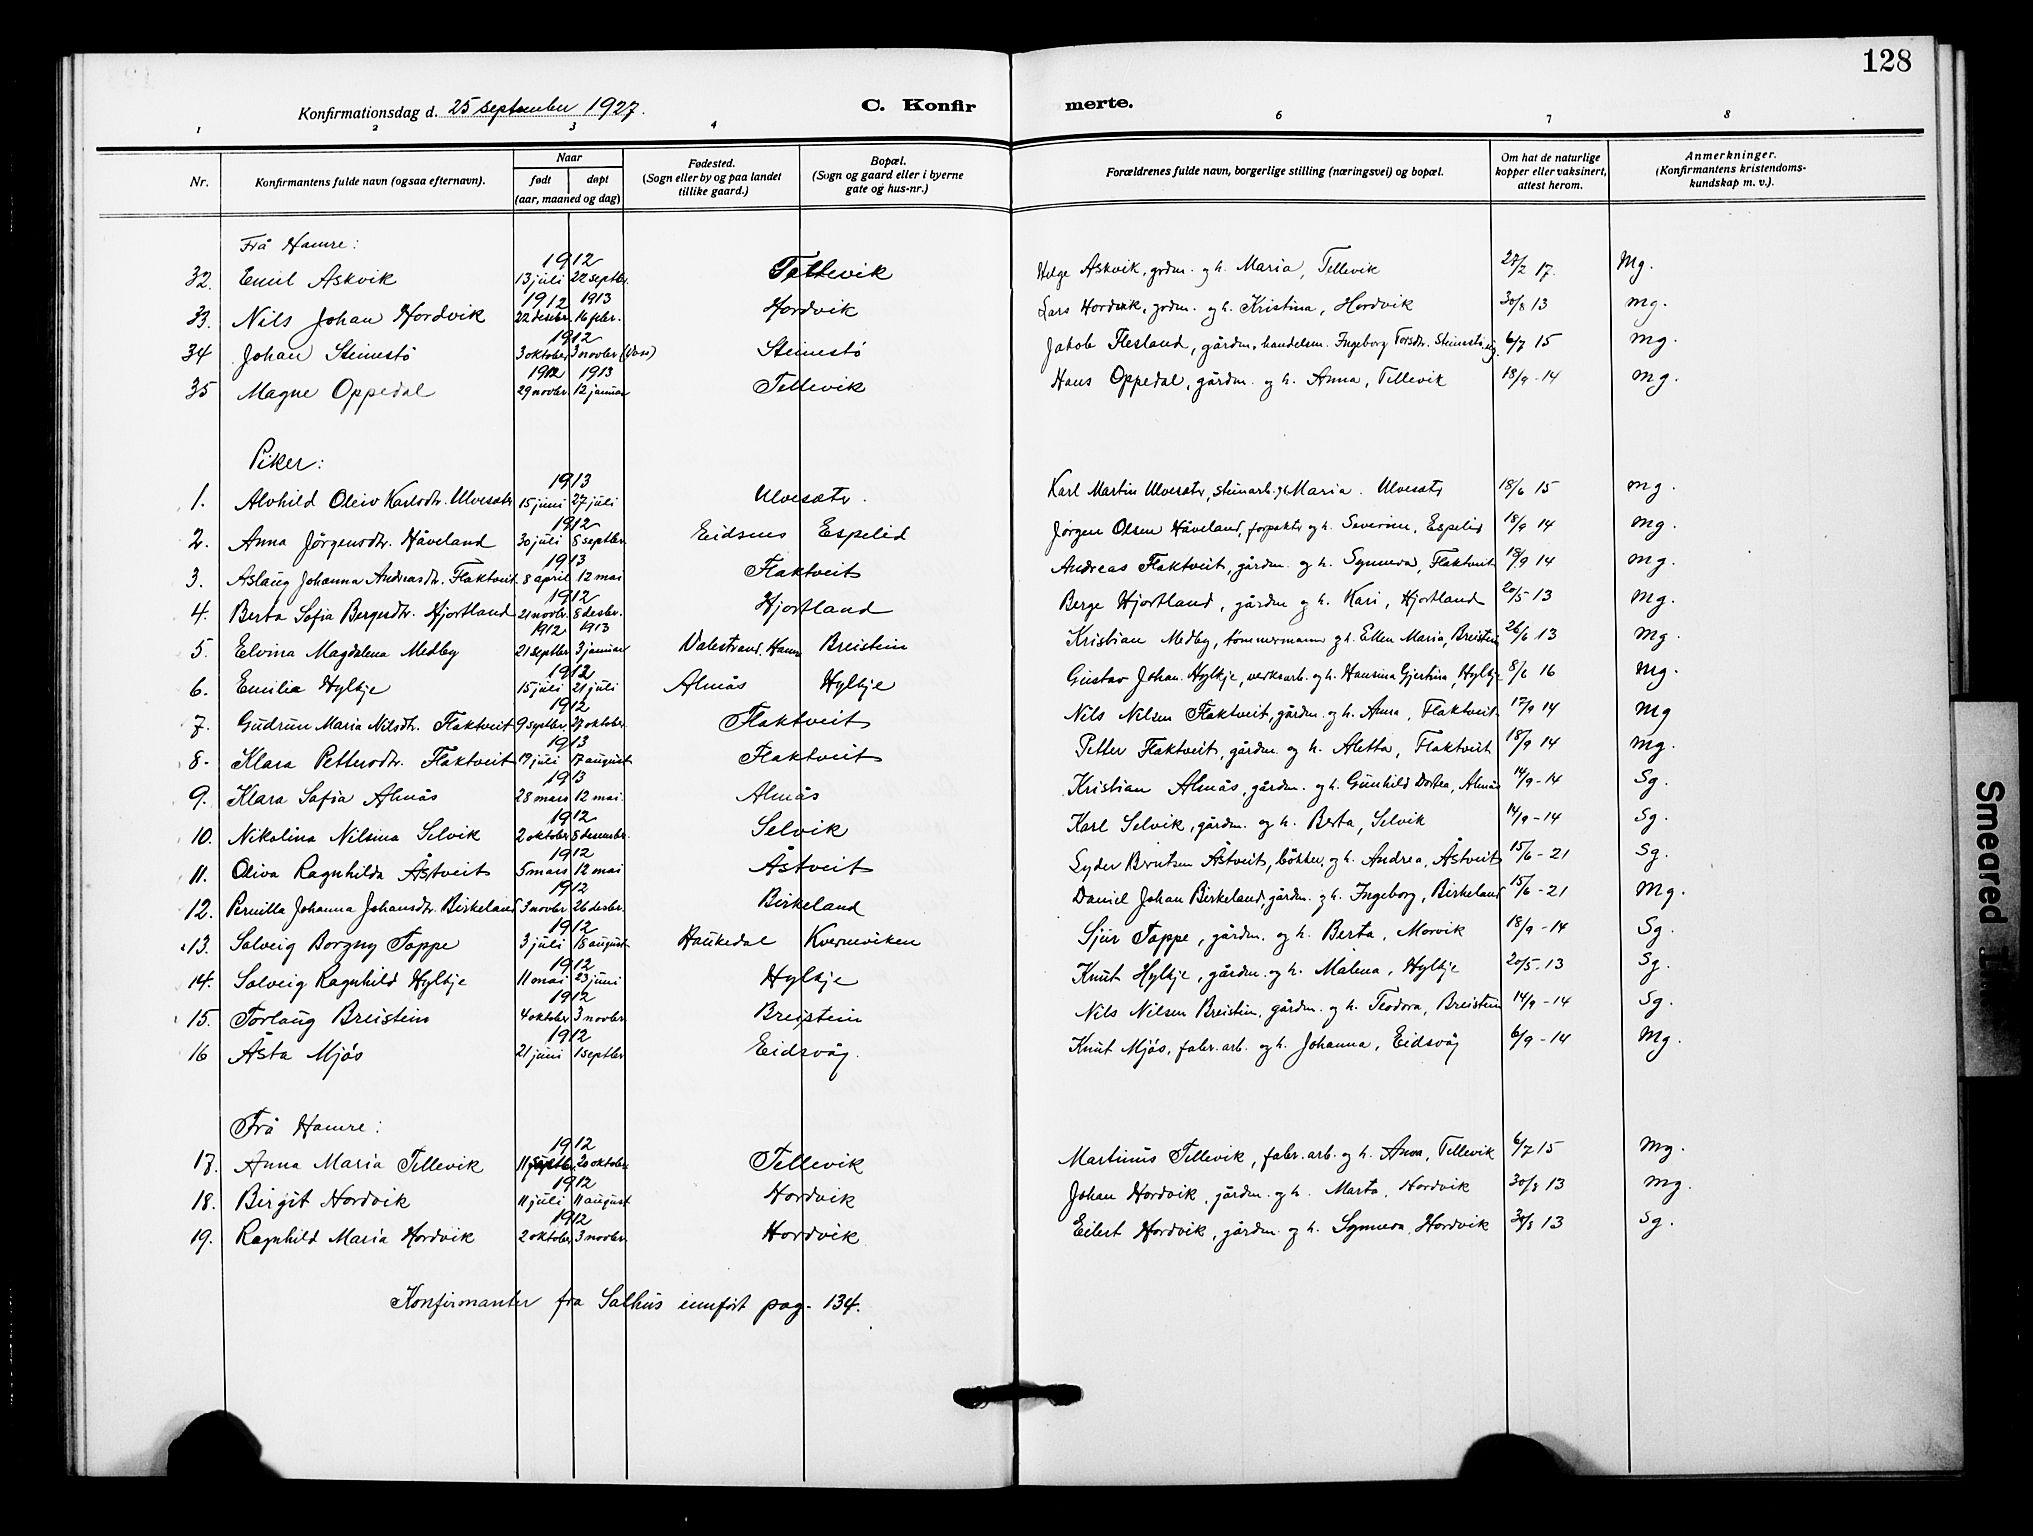 128
Konfirmationsdag d. 25 september 1927.
C. Konfirmerte.
1 2 3 4 6 7 8
Nr. Konfirmantens fulde navn (ogsaa efternavn). Naar født døpt (aar, maaned og dag) Fødested. (Sogn eller by og paa landet tillike gaard.) Bopæl. (Sogn og gaard eller i byerne gate og hus-nr.) Forældrenes fulde navn, borgerlige stilling (næringsvei) og bopæl. Om hat de naturlige kopper eller vaksinert, attest herom. Anmerkninger. (Konfirmantens kristendoms-kundskap m. v.).
Frå Hamre:
1912
32. Emil Askvik 13 juli 22 septbr. Tellevik Helge Askvik, grdm. og h. Maria, Tellevik 17. Mg.
1912 1913
33. Nils Johan Hordvik 22 desbr. 16 febr. Hordvik Lars Hordvik, grdm. og h. Kristina, Hordvik 30/8 13 Mg.
1912
34 Johan Steinestø 3 oktober 3 novbr (Voss) Steinestø Jakob Flesland, gårdm. handelsm. Ingeborg Torsdtr. Steinestø 6/7 15 Mg.
1912 1913
35 Magne Oppedal 29 novbr. 12 januar Tellevik Hans Oppedal, gårdm. og h. Anna, Tellevik 18/9 - 14 Mg.
Piker:
1913
1. Alvhild Oleiv Karlsdtr. Ulvesætr 15 juni 27 juli Ulvesætr. Karl Martin Ulvesætr, steinarb. og h. Maria. Ulvesætr 18/6 15 Mg.
1912
2. Anna Jörgensdtr. Håveland 30 juli 8 septbr. Eidsnes Espelid Jørgen Olsen Håveland, forpakter og h. Severine, Espelid 18/9 14 Mg.
1913
3. Aslaug Johanna Andreasdtr. Flaktveit 8 april 12 mai Flaktveit Andreas Flaktveit, gårdm. og h. Synneva, Flaktveit 18/9 14 Mg.
1912
4. Berta Sofia Bergesdtr. Hjortland 21 novbr. 8 desbr. Hjortland Berge Hjortland, gårdm og h. Kari, Hjortland 20/5 13 Mg.
1912 1913
5. Elvina Magdalena Medby 21 septbr 3 januar Valestrand, Hamre Breistein Kristian Medby, tømmermann og h. Ellen Maria, Breistein 26/6 13 Mg.
1912
6. Emilia Hylkje 15 juli 21 juli Almås Hylkje Gustav Johan. Hylkje, verksarb. og h. Hansina Gjertina, Hylkje 8/6 16 Mg.
1912
7. Gudrun Maria Nilsdtr. Flaktveit 9 septbr. 27 oktobr. Flaktveit Nils Nilsen Flaktveit, gårdm. og h. Anna, Flaktveit 17/9 14 Mg
1913
8. Klara Pettersdtr. Flaktveit 17 juli 17 august Flaktveit Petter Flaktveit, gårdm. og h. Aletta, Flaktveit 18/9 14 Mg.
1913
9. Klara Sofia Almås 28 mars 12 mai. Almås Kristian Almås, gårdm. og h. Gunhild Dortea, Almås 14/9 - 14 Sg.
1912
10. Nikolina Nilsina Selvik 2 oktober 8 desembr. Selvik Karl Selvik, gårdm. og h. Berta, Selvik 14/9 - 14 Sg.
1912
11. Oliva Ragnhilda Åstveit 5 mars 12 mai Åstveit Lyder Berntsen Åstveit, bökker, og h. Andrea, Åstveit 15/6 - 21 Sg.
1912
12. Pernilla Johanna Johansdtr. Birkeland 3 novbr 26 desbr. Birkeland Daniel Johan Birkeland, gårdm. og h. Ingeborg, Birkeland 15/6 - 21 Mg.
1912
13. Solveig Borgny Toppe 3 juli 18 august Haukedal Kverneviken Sjur Toppe, gårdm. og h. Berta, Morvik 18/9 - 14 Sg.
1912
14. Solveig Ragnhild Hylkje 11 mai 23 juni Hylkje Knut Hylkje, gårdm. og h. Malena, Hylkje 20/5 - 13 Sg.
1912
15. Torlaug Breistein 4 oktober 3 novbr. Breistein Nils Nilsen Breistein, gårdm. og h. Teodora, Breistein 14/9 - 14 Sg.
1912
16 Åsta Mjøs 21 juni 1 septbr Eidsvåg. Knut Mjøs, fabr. arb. og h. Johanna, Eidsvåg 6/9 - 14 Mg.
Frå Hamre:
1912
17. Anna Maria Tellevik 11 septbr. 20 oktober Tellevik Martinus Tellevik, fabr. arb. og h. Anna, Tellevik 6/7 15 Mg.
1912
18. Birgit Hordvik 11 juli 11 august Hordvik Johan Hordvik, gårdm. og h. Marta, Hordvik 30/8 13 Mg.
1912
19. Ragnhild Maria Hordvik 2 oktober 3 novbr. Hordvik Eilert Hordvik, gårdm. og h. Synneva, Hordvik 30/8 13 Sg.
Konfirmanter fra Salhus innført pag. 134.
Smeared